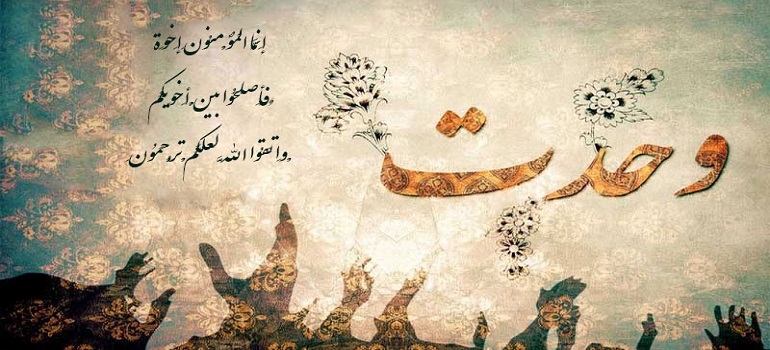 وحدت
إنما المؤمنون إخوة
فأصلحوا بين أخويكم
واتقوا الله لعلكم ترحمون